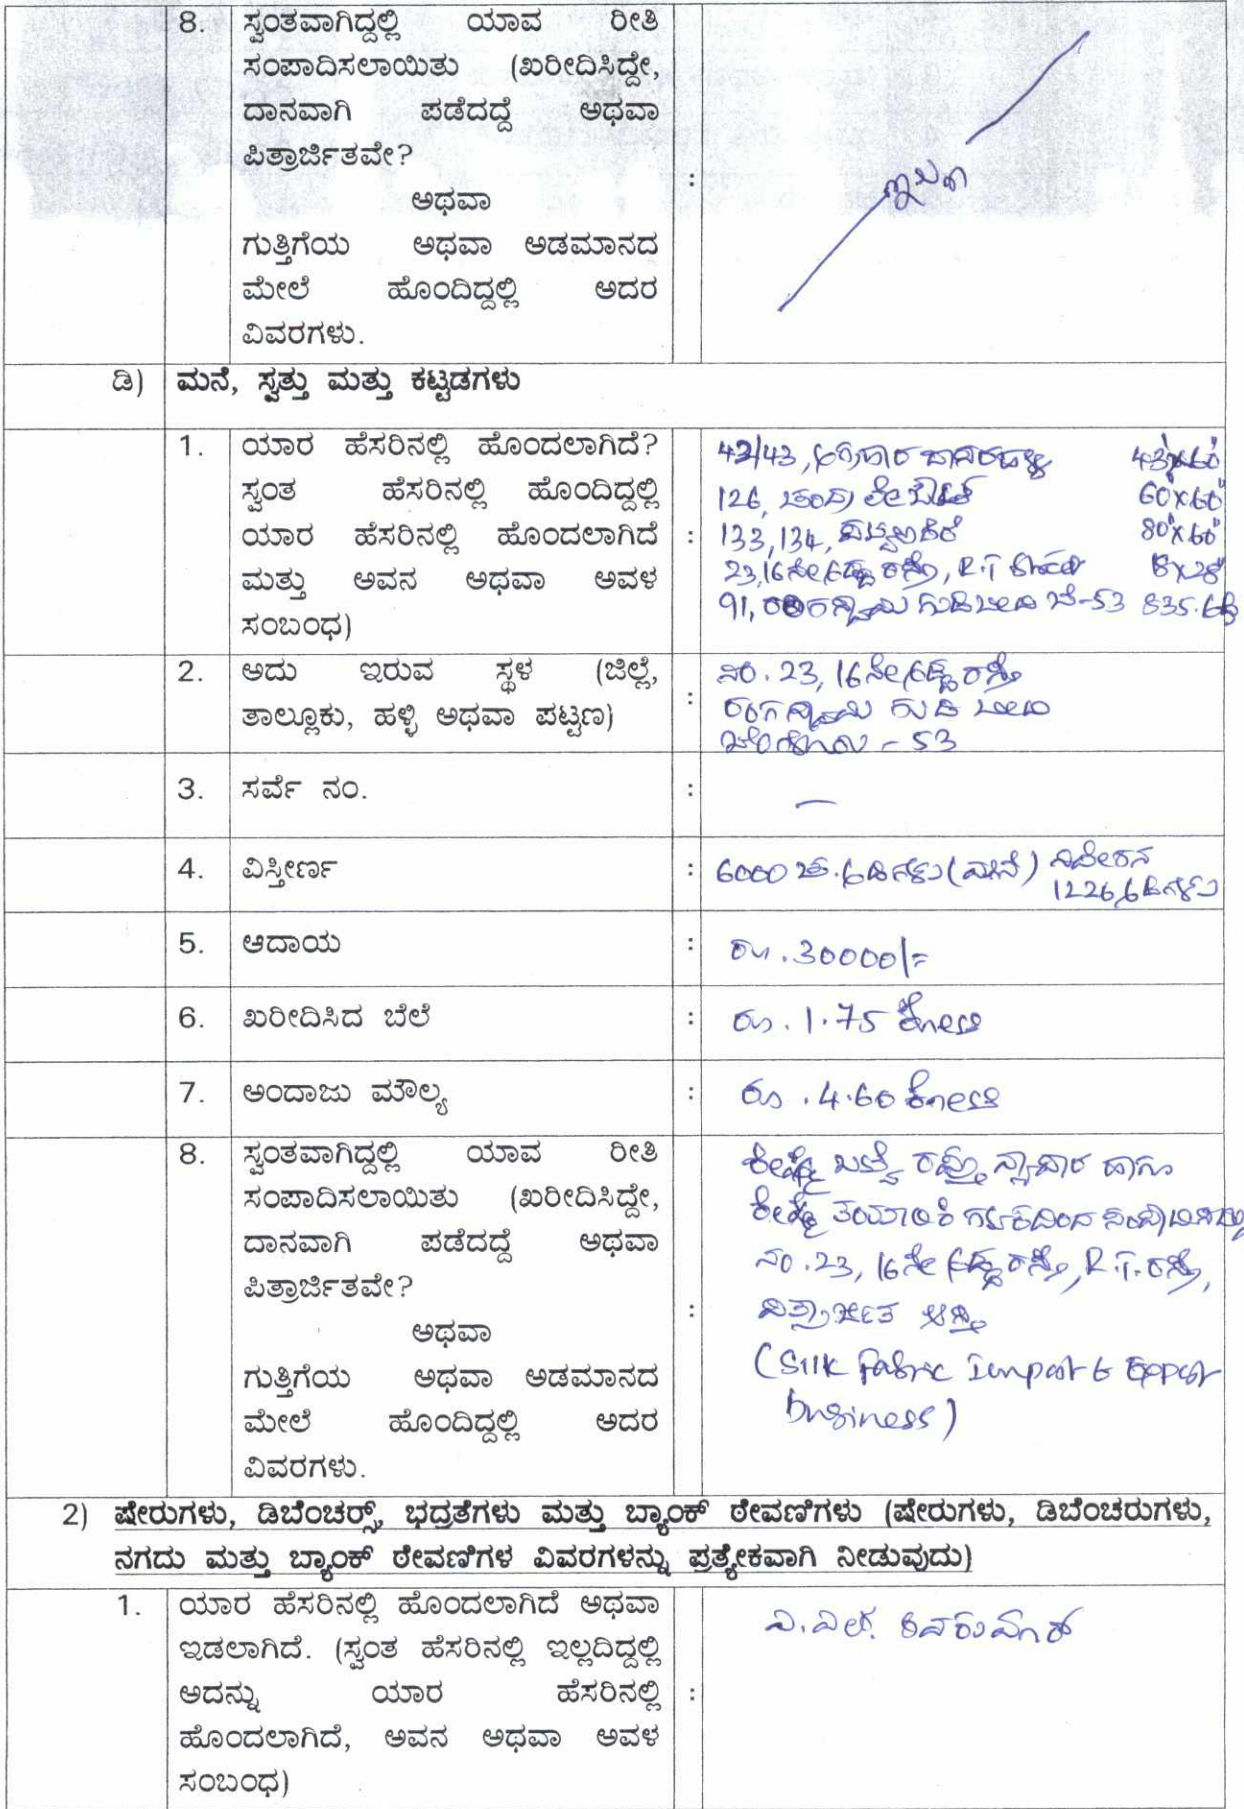 8. ಸ್ವಂತವಾಗಿದ್ದಲ್ಲಿ ಯಾವ ರೀತಿ
ಸಂಪಾದಿಸಲಾಯಿತು (ಖರೀದಿಸಿದ್ದೇ,
ದಾನವಾಗಿ ಪಡೆದದ್ದೆ ಅಥವಾ
ಪಿತ್ರಾರ್ಜಿತವೇ?
:
ಅಥವಾ
ಗುತ್ತಿಗೆಯ ಅಥವಾ ಅಡಮಾನದ
ಮೇಲೆ ಹೊಂದಿದ್ದಲ್ಲಿ ಅದರ
ವಿವರಗಳು.
ಡಿ) ಮನೆ, ಸ್ವತ್ತು ಮತ್ತು ಕಟ್ಟಡಗಳು
1. ಯಾರ ಹೆಸರಿನಲ್ಲಿ ಹೊಂದಲಾಗಿದೆ?
ಸ್ವಂತ ಹೆಸರಿನಲ್ಲಿ ಹೊಂದಿದ್ದಲ್ಲಿ
ಯಾರ ಹೆಸರಿನಲ್ಲಿ ಹೊಂದಲಾಗಿದೆ :
ಮತ್ತು ಅವನ ಅಥವಾ ಅವಳ
ಸಂಬಂಧ)
42/43, 43x60
126, 60x60
133,134, 80x60
23,16ನೇ ಅಡ್ಡ ರಸ್ತೆ, R.T
91, ರಂಗಸ್ವಾಮಿ ಗುಡಿ ಬೀದಿ ಬೆ-53 835.
2. ಅದು ಇರುವ ಸ್ಥಳ (ಜಿಲ್ಲೆ,
ತಾಲ್ಲೂಕು, ಹಳ್ಳಿ ಅಥವಾ ಪಟ್ಟಣ) :
ನಂ. 23, 16ನೇ ಅಡ್ಡ ರಸ್ತೆ
ರಂಗಸ್ವಾಮಿ ಗುಡಿ ಬೀದಿ
ಬೆಂಗಳೂರು - 53
3. ಸರ್ವೆ ನಂ. : —
4. ವಿಸ್ತೀರ್ಣ : 6000 ಚ.ಅಡಿಗಳು (ಮನೆ) ನಿವೇಶನ
1226 ಅಡಿಗಳು
5. ಆದಾಯ : ರೂ.30000/=
6. ಖರೀದಿಸಿದ ಬೆಲೆ : ರೂ. 1.75 ಕೋಟಿ
7. ಅಂದಾಜು ಮೌಲ್ಯ : ರೂ. 4.60 ಕೋಟಿ
8. ಸ್ವಂತವಾಗಿದ್ದಲ್ಲಿ ಯಾವ ರೀತಿ
ಸಂಪಾದಿಸಲಾಯಿತು (ಖರೀದಿಸಿದ್ದೇ,
ದಾನವಾಗಿ ಪಡೆದದ್ದೆ ಅಥವಾ
ಪಿತ್ರಾರ್ಜಿತವೇ?
:
ಅಥವಾ
ಗುತ್ತಿಗೆಯ ಅಥವಾ ಅಡಮಾನದ
ಮೇಲೆ ಹೊಂದಿದ್ದಲ್ಲಿ ಅದರ
ವಿವರಗಳು.
ರೇಷ್ಮೆ ಬಟ್ಟೆ ರಫ್ತು ವ್ಯಾಪಾರ ಹಾಗೂ
ರೇಷ್ಮೆ ತಯಾರಿಕೆ
ನಂ.23, 16ನೇ ಅಡ್ಡ ರಸ್ತೆ, R.T. ರಸ್ತೆ,
ಪಿತ್ರಾರ್ಜಿತ ಆಸ್ತಿ
(Silk Fabric Import & Export
business)
2) ಷೇರುಗಳು, ಡಿಬೆಂಚರ್ಸ್, ಭದ್ರತೆಗಳು ಮತ್ತು ಬ್ಯಾಂಕ್ ಠೇವಣಿಗಳು (ಷೇರುಗಳು, ಡಿಬೆಂಚರುಗಳು,
ನಗದು ಮತ್ತು ಬ್ಯಾಂಕ್ ಠೇವಣಿಗಳ ವಿವರಗಳನ್ನು ಪ್ರತ್ಯೇಕವಾಗಿ ನೀಡುವುದು)
1. ಯಾರ ಹೆಸರಿನಲ್ಲಿ ಹೊಂದಲಾಗಿದೆ ಅಥವಾ
ಇಡಲಾಗಿದೆ. (ಸ್ವಂತ ಹೆಸರಿನಲ್ಲಿ ಇಲ್ಲದಿದ್ದಲ್ಲಿ
ಅದನ್ನು ಯಾರ ಹೆಸರಿನಲ್ಲಿ :
ಹೊಂದಲಾಗಿದೆ, ಅವನ ಅಥವಾ ಅವಳ
ಸಂಬಂಧ)